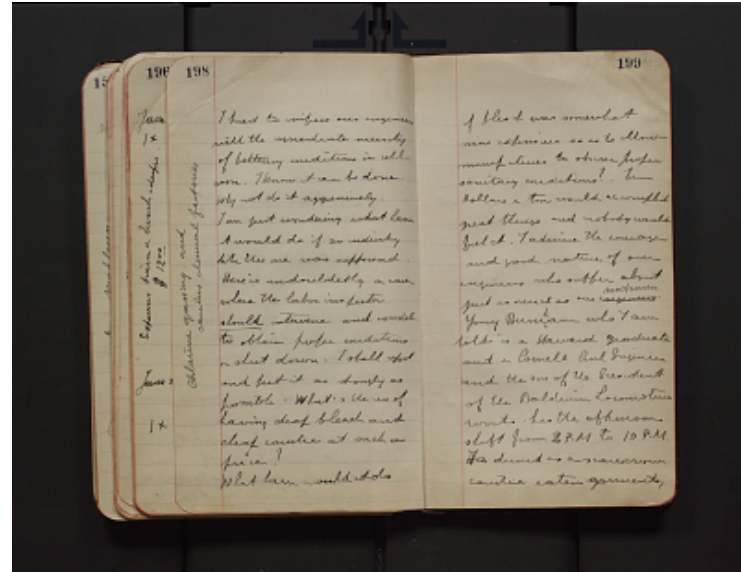 15
196
June
1 +
Expenses
$1200
June 3
1 +
198
Chlorine gassing and
caustic chemical factories
I tried to impress our engineers
with the immediate necessity
of bettering conditions in cell
room. I know it can be done.
Why not do it aggressively.
I am just wondering what harm
it would do if an industry
like this one was suppressed.
Here is undoubtedly a case
where the labor inspector
should intervene and
to obtain proper conditions
or shut down. I shall
and put it as strongly as
possible. What's the use of
having cheap bleach and
cheap caustic at such a
price!
What harm would it do
199
if bleach was somewhat
more expensive so as to allow
manufacturers to observe proper
sanitary conditions? Ten
dollars a ton would accomplish
great things and nobody would
feel it. I admire the courage
and good nature of our
engineers who suffer about
just as much as our workmen
engineers
Young Burnham who I am
told is a Harvard graduate
and a Cornell Civil Engineer
and the son of the President
of the Baldwin Locomotive
works. has the afternoon
shift from 2 P.M to 10 P.M.
He is dressed as a scarecrow
caustic eaten garments,